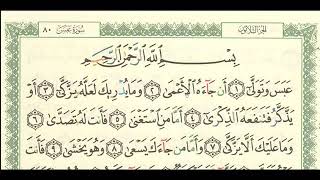 الجزء الثلاثون ٨٠ سورة عبس
بِسْمِ اللَّهِ الرَّحْمَٰنِ الرَّحِيمِ
عَبَسَ وَتَوَلَّىٰٓ ﴿١﴾ أَن جَآءَهُ ٱلْأَعْمَىٰ ﴿٢﴾ وَمَا يُدْرِيكَ لَعَلَّهُۥ يَزَّكَّىٰٓ ﴿٣﴾ أَوْ
يَذَّكَّرُ فَتَنفَعَهُ ٱلذِّكْرَىٰٓ ﴿٤﴾ أَمَّا مَنِ ٱسْتَغْنَىٰ ﴿٥﴾ فَأَنتَ لَهُۥ تَصَدَّىٰ ﴿٦﴾
وَمَا عَلَيْكَ أَلَّا يَزَّكَّىٰ ﴿٧﴾ وَأَمَّا مَن جَآءَكَ يَسْعَىٰ ﴿٨﴾ وَهُوَ يَخْشَىٰ ﴿٩﴾ فَأَنتَ